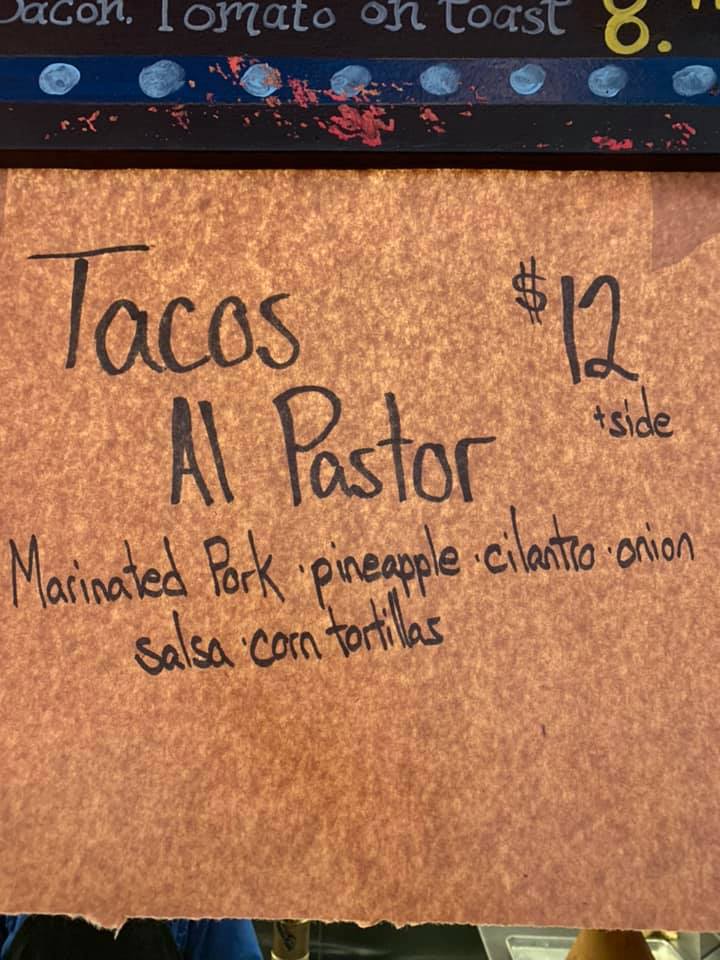 Bacon. Tomato on Toast 8.
Tacos $12
+side
Al Pastor
Marinated Pork · pineapple · cilantro · onion
salsa · corn tortillas